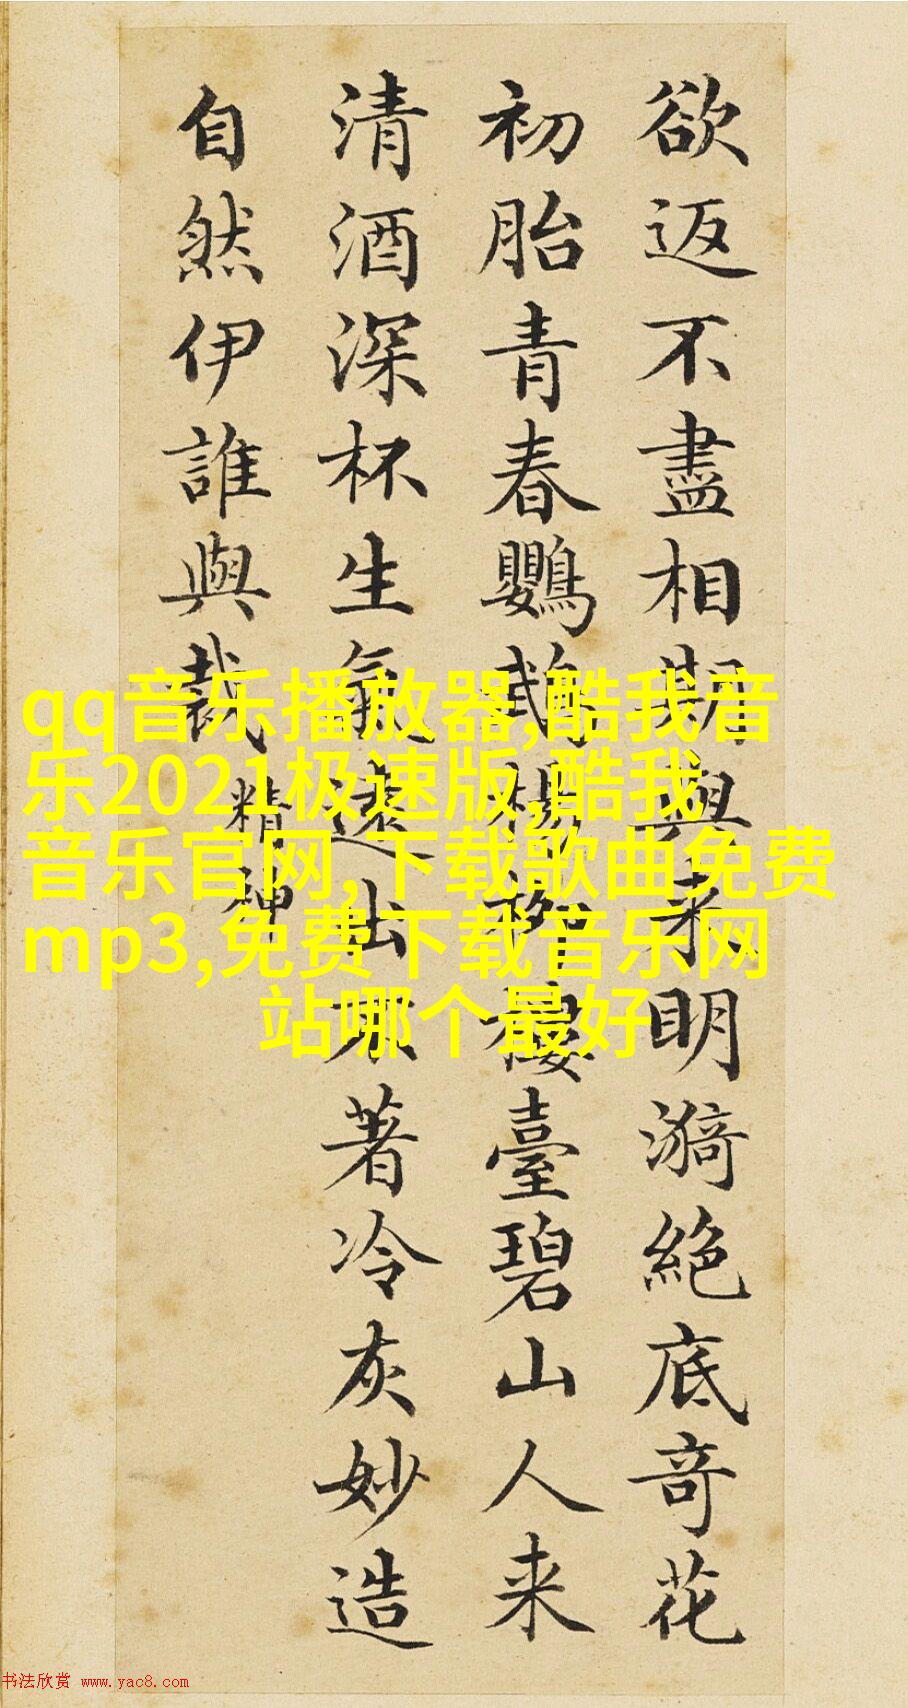 欲返不盡相期與来明漪絶底竒花
初胎青春鸚鵡楊柳樓臺碧山人来
清酒深杯生氣遠出不著冷灰妙造
自然伊誰與裁
精神
qq音乐播放器,酷我音
乐2021极速版,酷我
音乐官网,下载歌曲免费
mp3,免费下载音乐网
站哪个最好
书法欣赏 www.yac8.com